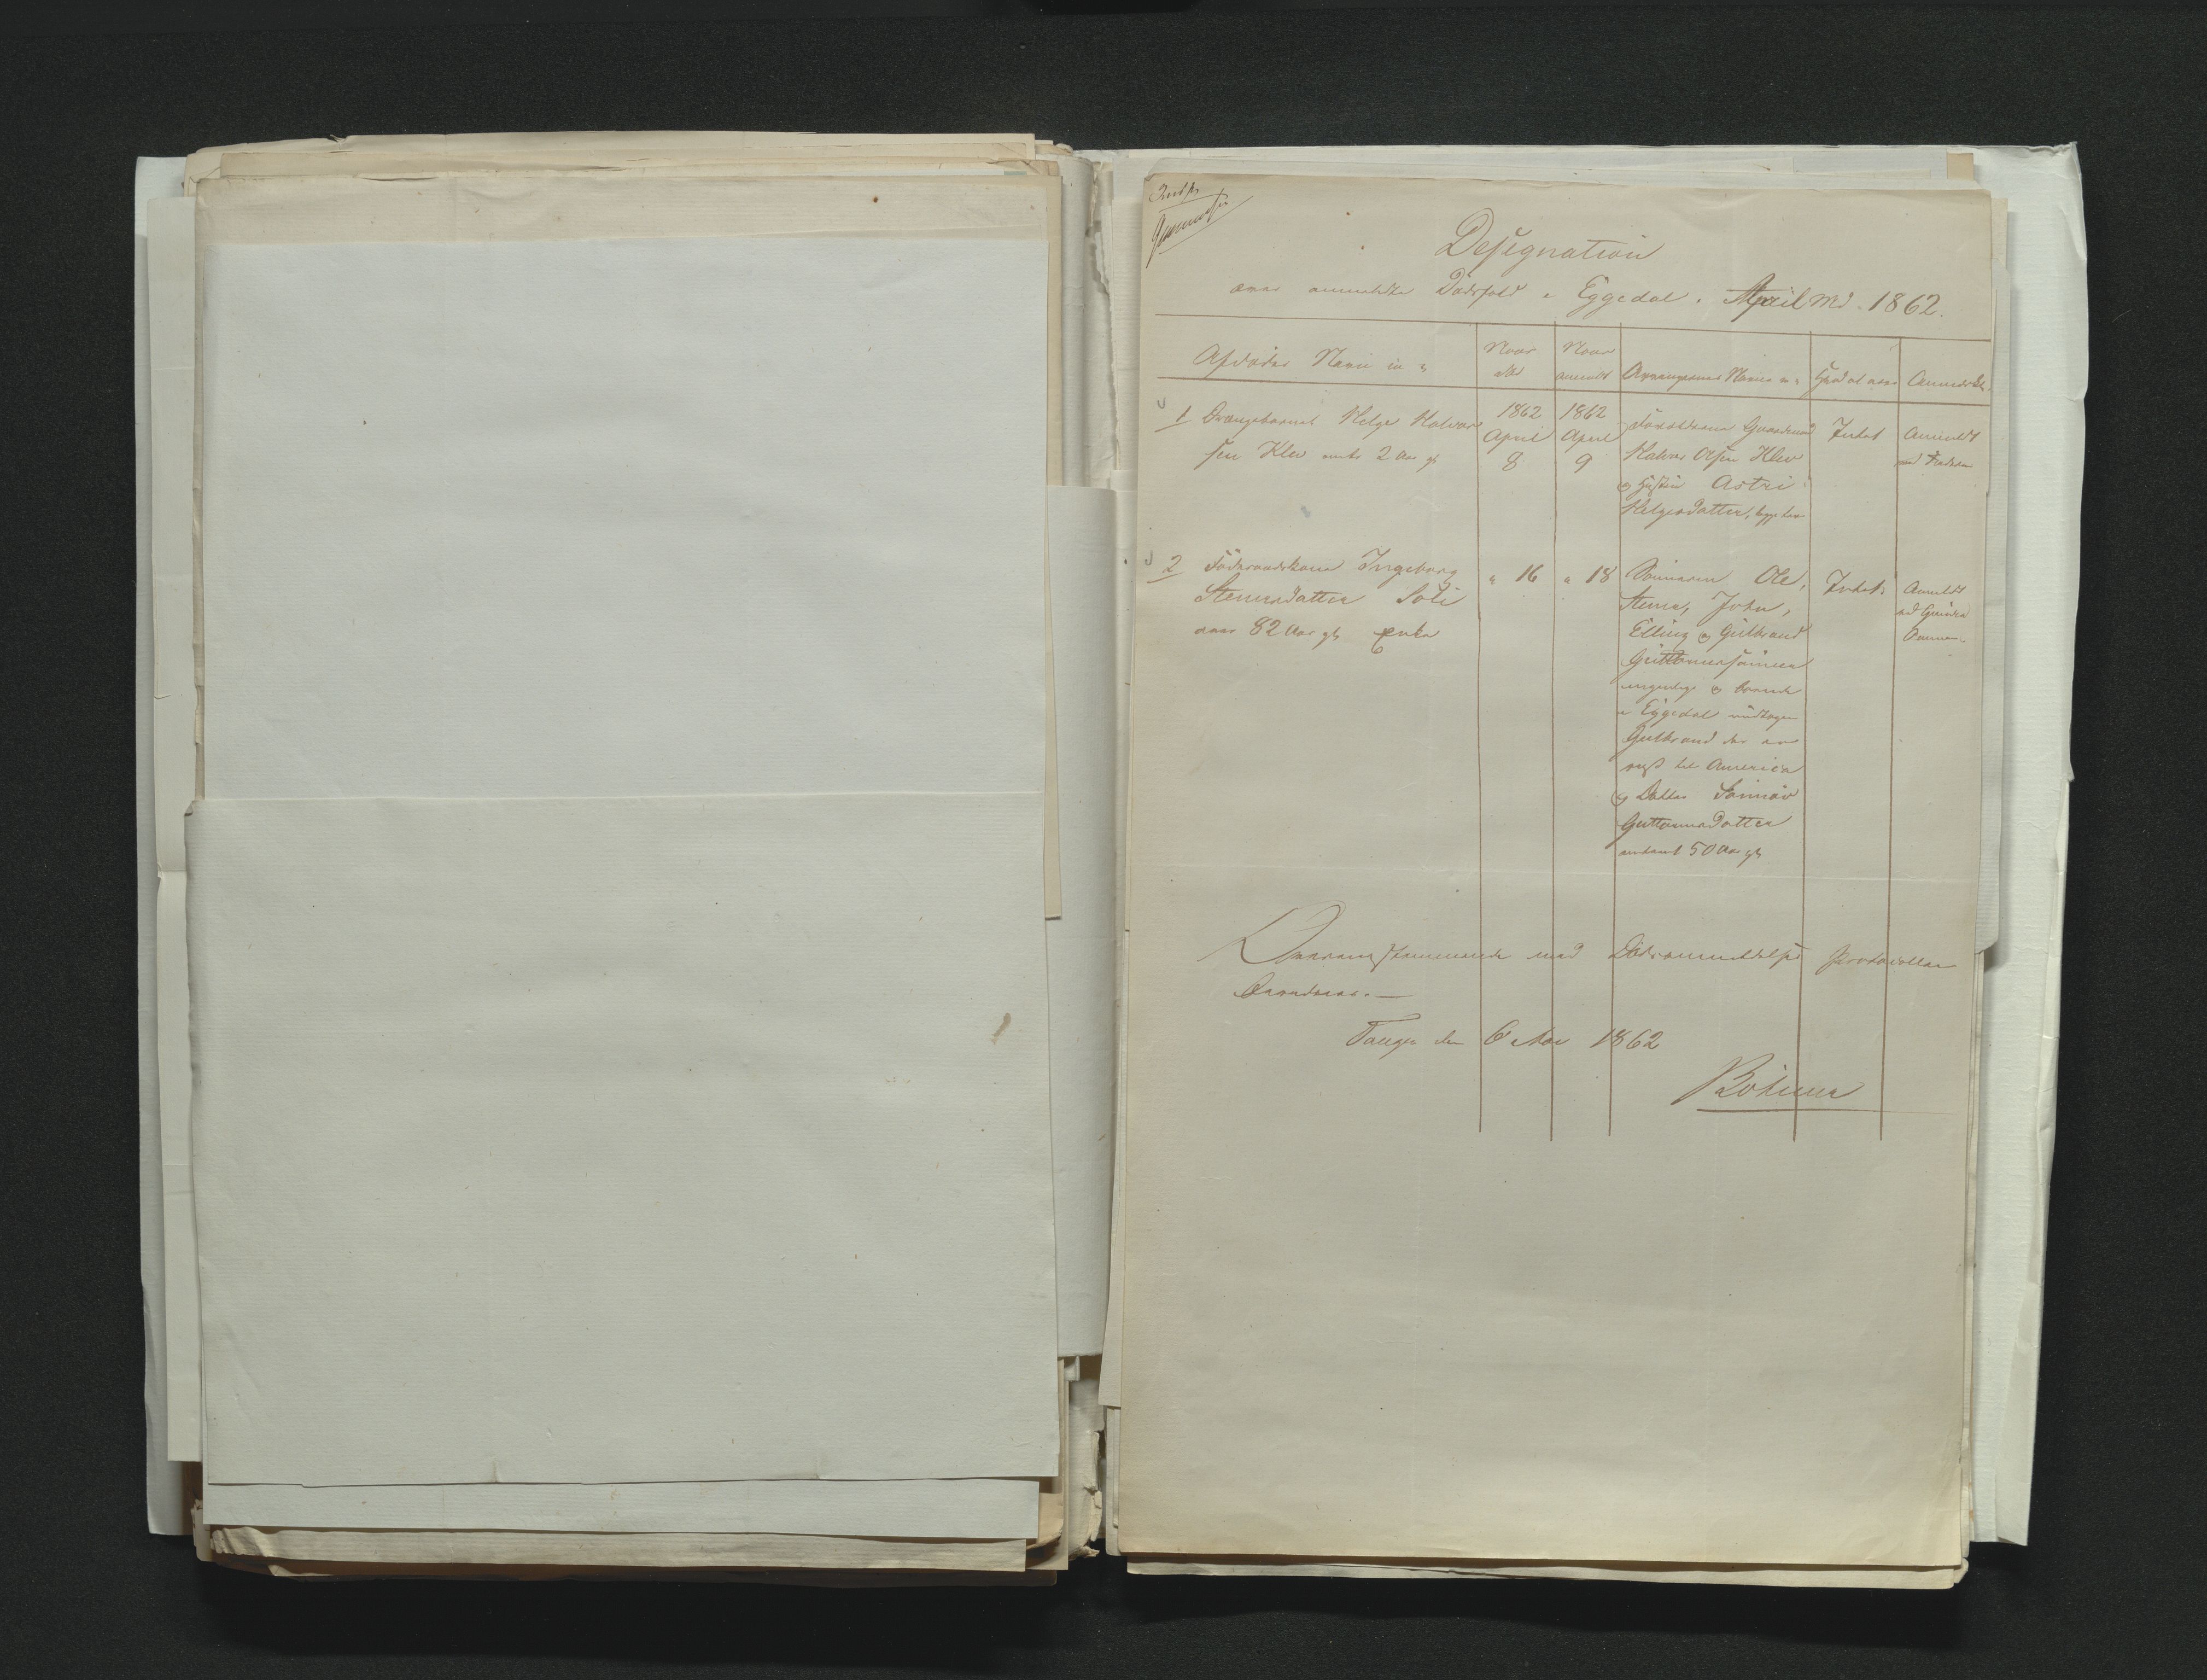 Designation
over anmeldte Dödsfald i Eggedal i April Md. 1862.
Afdödes Navn m. v.
Naar död
Naar anmeldt
Arvingernes Navne m. v.
Anmærkn.
1 Drengebarnet Helge Halvor
sen Klev 2 Aar gl
1862
April
8
1862
April
9
Forældrene Gaardmand
Halvor Olsen Klev
og Hustru Astri
Helgesdatter, begge
Intet
Anmeldt
ved Faderen
2 Föderaadskone Ingeborg
Stenersdatter Soli
82 Aar gl Enke
" 16
" 18
Sönnerne Ole,
Stener, John,
Elling og Gulbrand
Guttormsönner
myndige og boende
i Eggedal undtagen
Gulbrand der er
reist til America
og Datter Sönnöv
Guttormsdatter
omtrent 50 Aar gl
Intet
Anmeldt
ved
Overensstemmende med Dödsanmeldelses Protocollen
bevidnes.
den 6 Mai 1862